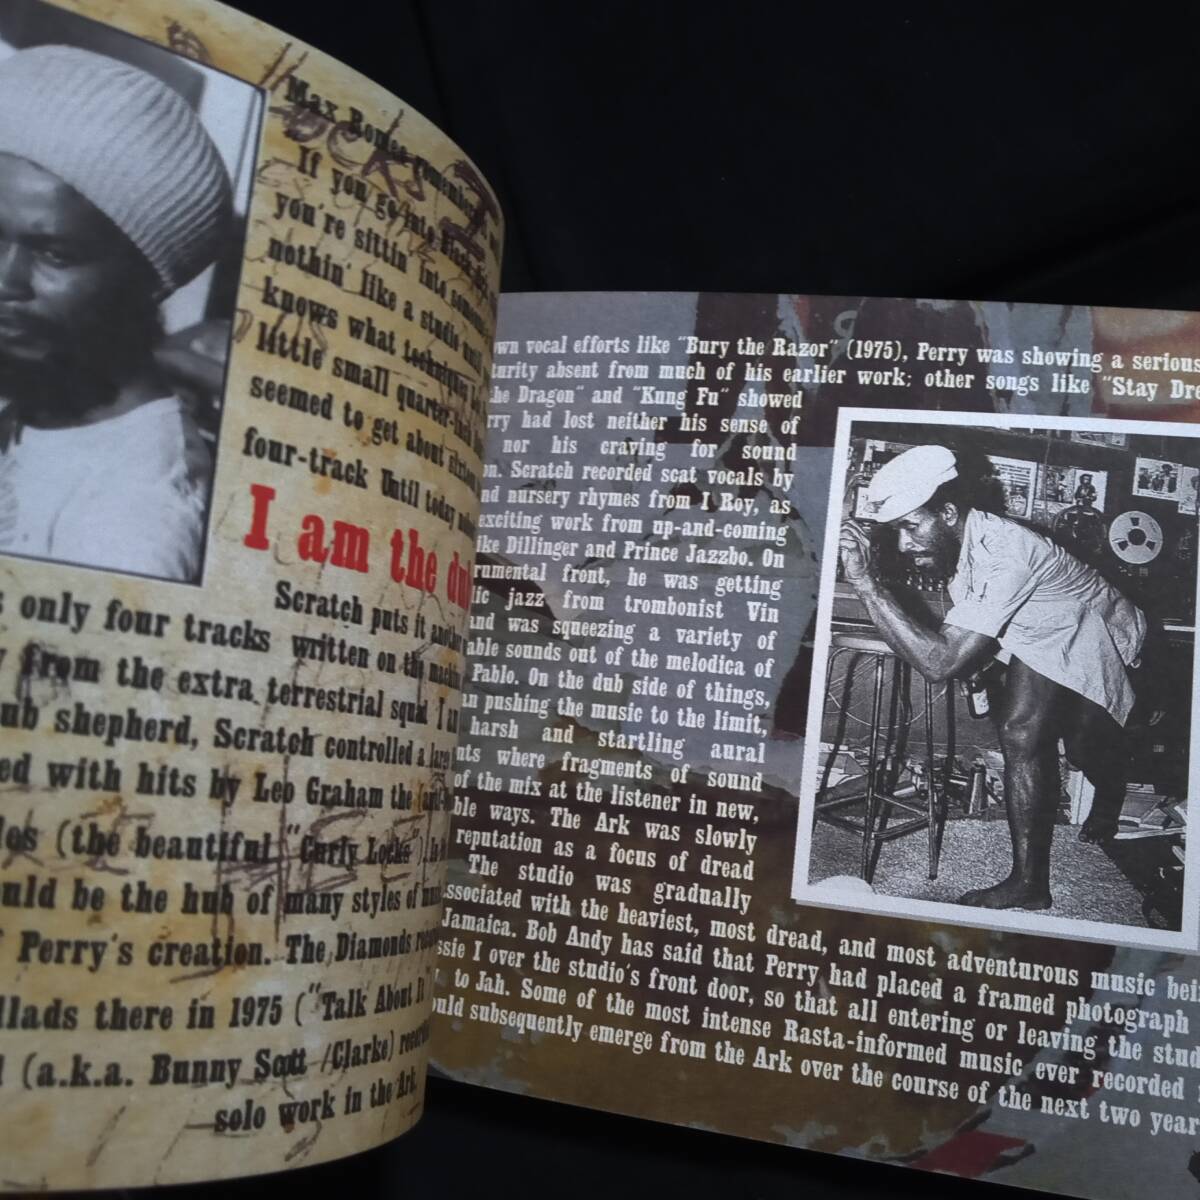 Max Romeo
If you go into Black
you're sittin' into
nothin' like a studio until
knows what technique
little small quarter-inch
seemed to get about
four-track Until today
I am the dub
Scratch puts it
only four tracks written on the machine
from the extra terrestrial squad I
ub shepherd, Scratch controlled a
ed with hits by Leo Graham the
les (the beautiful "Curly Locks")
uld be the hub of many styles of
Perry's creation. The Diamonds
llads there in 1975 ("Talk About It"
(a.k.a. Bunny Scott /Clarke)
solo work in the Ark.
wn vocal efforts like "Bury the Razor" (1975), Perry was showing a serious
turity absent from much of his earlier work; other songs like "Stay Dre
he Dragon" and "Kung Fu" showed
rry had lost neither his sense of
nor his craving for sound
on. Scratch recorded scat vocals by
nd nursery rhymes from I Roy, as
exciting work from up-and-coming
ike Dillinger and Prince Jazzbo. On
rumental front, he was getting
lic jazz from trombonist Vin
and was squeezing a variety of
able sounds out of the melodica of
Pablo. On the dub side of things,
an pushing the music to the limit,
harsh and startling aural
nts where fragments of sound
of the mix at the listener in new,
ble ways. The Ark was slowly
reputation as a focus of dread
The studio was gradually
ssociated with the heaviest, most dread, and most adventurous music bei
Jamaica. Bob Andy has said that Perry had placed a framed photograph
ssie I over the studio's front door, so that all entering or leaving the stud
to Jah. Some of the most intense Rasta-informed music ever recorded
uld subsequently emerge from the Ark over the course of the next two year